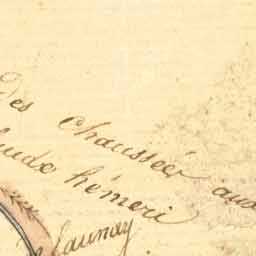 Des chaussées aux
hémeri
Launay